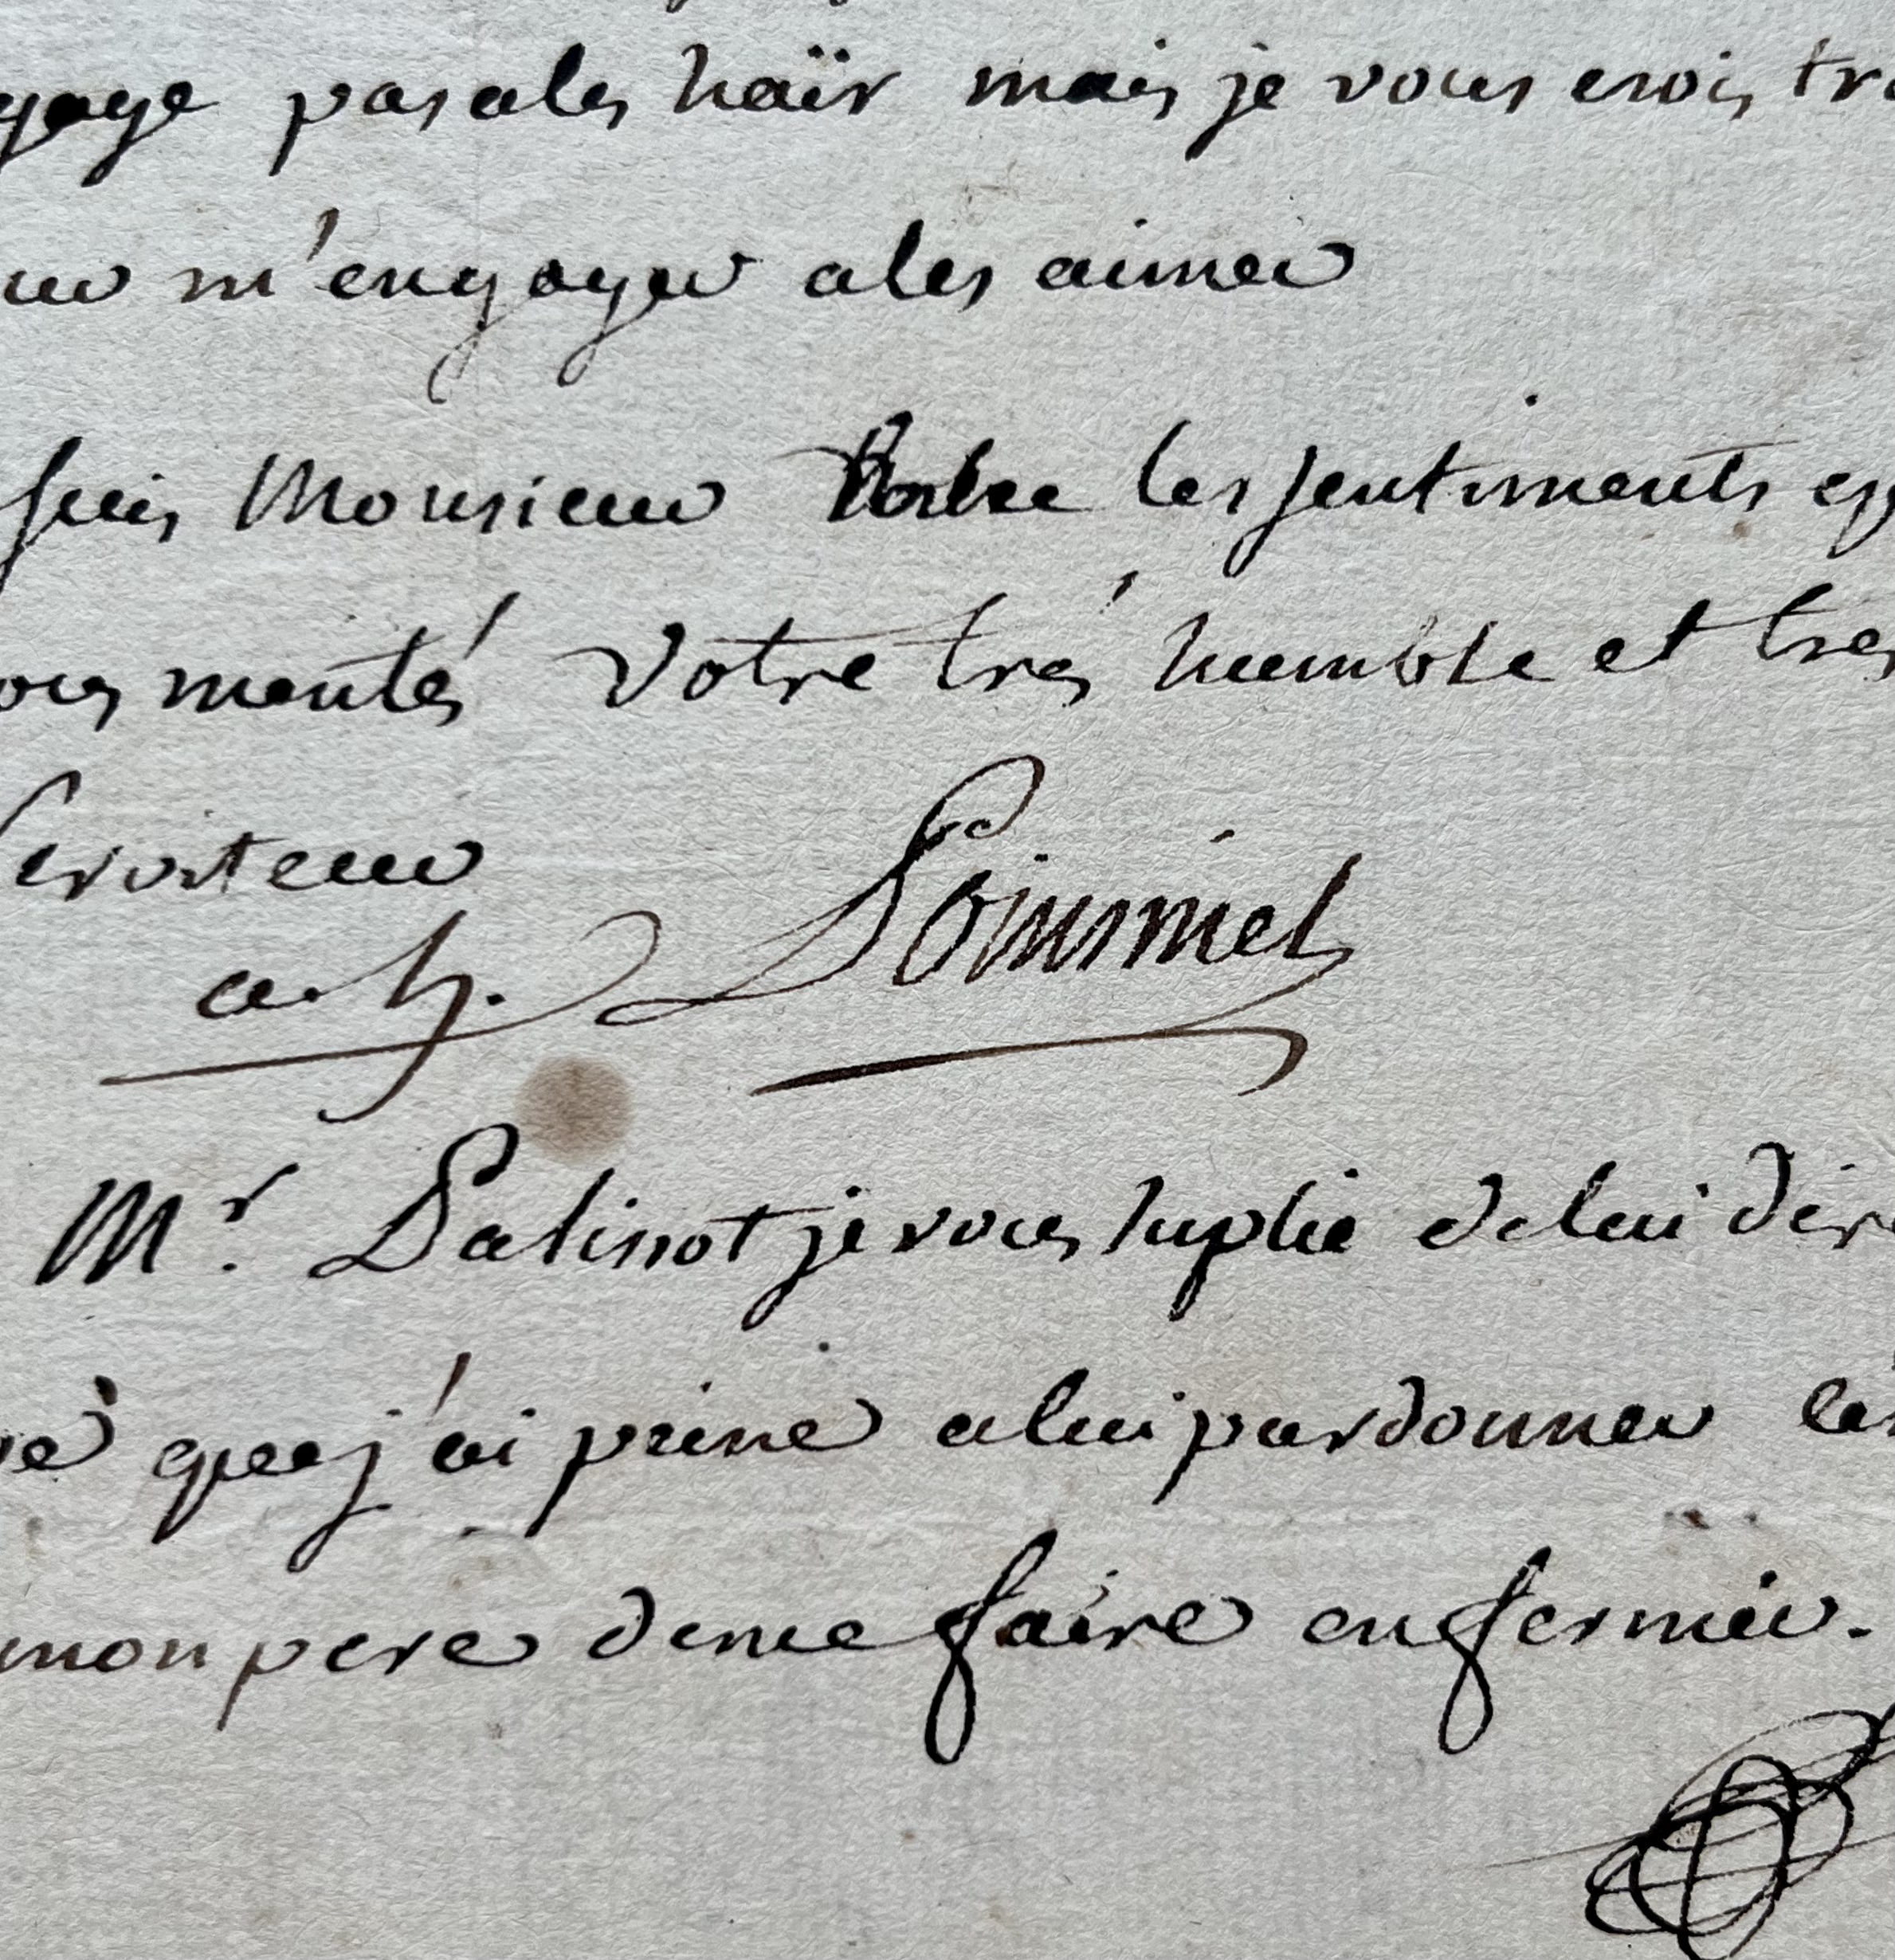 gage pas a les haïr mais je vous crois tro
m'engager a les aimer
suis Monsieur les sentiments
votre trés humble et tres
serviteur
a. h. Poinsinet
Mr. Palissot je vous suplie de lui dire
que j'ai peine a lui pardonner
mon pere de me faire enfermer.